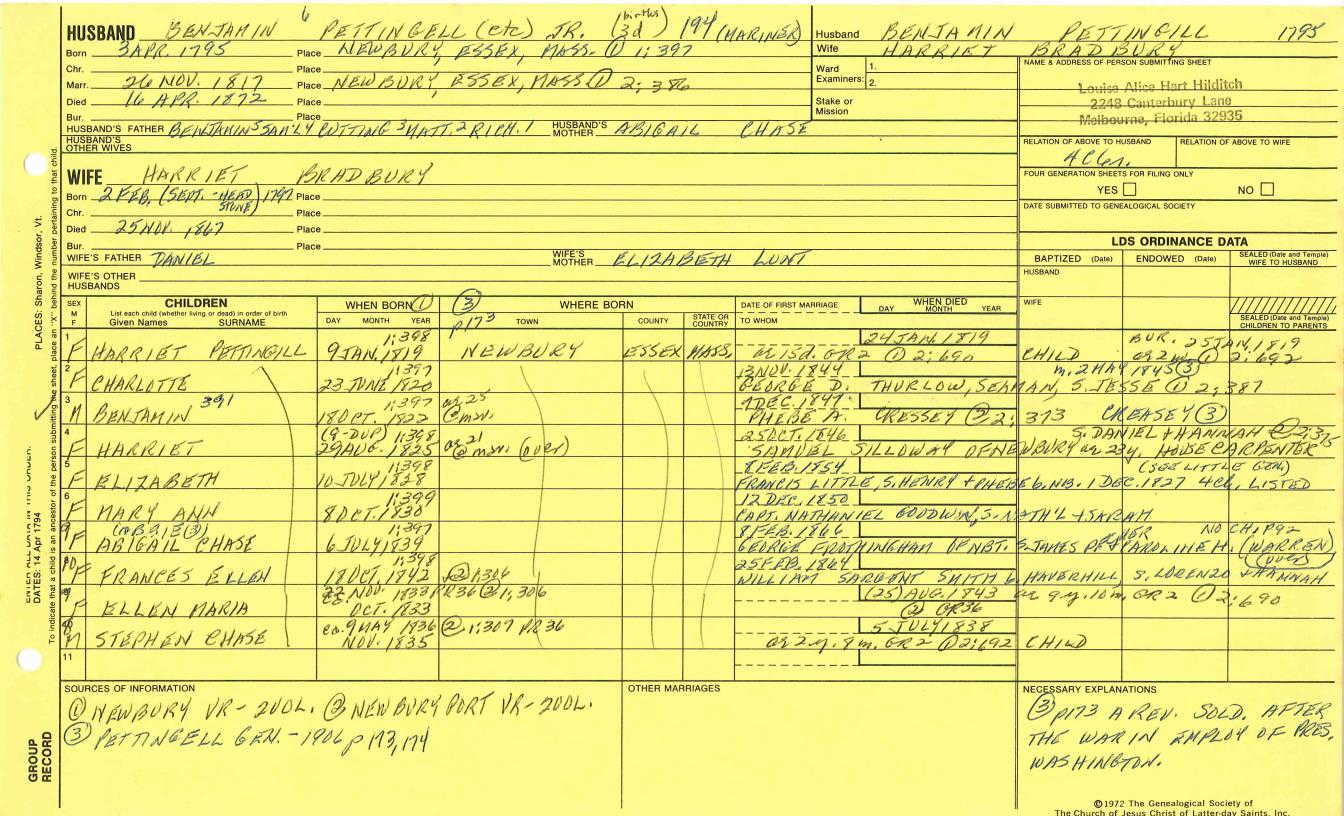 HUSBAND BENJAMIN 6 PETTINGELL (etc) JR. (births 3d) 194 (MARINER)
Born 3 APR. 1795 Place NEWBURY, ESSEX, MASS. ① 1:397
Chr. Place
Marr. 26 NOV. 1817 Place NEWBURY, ESSEX, MASS ① 2:386
Died 16 APR. 1872 Place
Bur. Place
HUSBAND'S FATHER BENJAMIN 5 SAM'L 4 CUTTING 3 MATT. 2 RICH. 1 HUSBAND'S MOTHER ABIGAIL CHASE
HUSBAND'S OTHER WIVES
Husband BENJAMIN PETTINGILL 1795
Wife HARRIET BRADBURY
Ward Examiners: 1. 2.
Stake or Mission
NAME & ADDRESS OF PERSON SUBMITTING SHEET
Louise Alice Hart Hilditch
2248 Canterbury Lane
Melbourne, Florida 32935
RELATION OF ABOVE TO HUSBAND RELATION OF ABOVE TO WIFE
4C6r.
FOUR GENERATION SHEETS FOR FILING ONLY
YES NO
DATE SUBMITTED TO GENEALOGICAL SOCIETY
WIFE HARRIET BRADBURY
Born 2 FEB. (SEPT. - HEAD STONE) 1797 Place
Chr. Place
Died 25 NOV. 1867 Place
Bur. Place
WIFE'S FATHER DANIEL WIFE'S MOTHER ELIZABETH LUNT
WIFE'S OTHER HUSBANDS
LDS ORDINANCE DATA
BAPTIZED (Date) ENDOWED (Date) SEALED (Date and Temple) WIFE TO HUSBAND
HUSBAND
WIFE
SEALED (Date and Temple) CHILDREN TO PARENTS
SEX M F CHILDREN List each child (whether living or dead) in order of birth Given Names SURNAME
WHEN BORN ① DAY MONTH YEAR ③ p173 WHERE BORN TOWN COUNTY STATE OR COUNTRY
DATE OF FIRST MARRIAGE TO WHOM WHEN DIED DAY MONTH YEAR
1 F HARRIET PETTINGILL 1:398 9 JAN. 1819 NEWBURY ESSEX MASS. 24 JAN. 1819 ae 15d. GR2 ① 2:690 CHILD BUR. 25 JAN. 1819 ae 2w. ① 2:692
2 F CHARLOTTE 1:397 23 JUNE 1820 3 NOV. 1844 m. 2 MAY 1845 ③ GEORGE D. THURLOW, SEAMAN, S. JESSE ① 2:387
3 M BENJAMIN 391 1:397 18 OCT. 1822 ae 25 @ mar. 7 DEC. 1847 PHEBE A. CRESSEY ② 2:373 CREASEY ③
4 F HARRIET (9-DUP) 1:398 29 AUG. 1825 ae 21 @ mar. (over) 25 OCT. 1846 SAMUEL SILLOWAY OF NEWBURY ae 23y, HOUSE CARPENTER S. DANIEL + HANNAH ② 2:375
5 F ELIZABETH 1:398 10 JULY 1828 8 FEB. 1854 FRANCIS LITTLE, S. HENRY + PHEBE b. NB. 1 DEC. 1827 4C6, LISTED (SEE LITTLE GEN.)
6 F MARY ANN 1:399 8 OCT. 1830 12 DEC. 1850 CAPT. NATHANIEL GOODWIN, S. NATH'L + SARAH
9 F (ABBIE ③) ABIGAIL CHASE 1:397 6 JULY 1839 8 FEB. 1866 NO CH. P92 GEORGE FROTHINGHAM OF NBT. S. JAMES + CAROLINE H. (WARREN) (over)
10 F FRANCES ELLEN 1:398 18 OCT. 1842 ② 1:306 25 FEB. 1864 WILLIAM SARGENT SMITH b. HAVERHILL, S. LORENZO + HANNAH
7 F ELLEN MARIA 22 NOV. 1833 PR36 ② 1:306 OCT. 1833 (25) AUG. 1843 ② GR36 ae 9y. 10m. GR2 ① 2:690
8 M STEPHEN CHASE ca. 9 MAY 1836 ② 1:307 PR36 NOV. 1835 5 JULY 1838 ae 2y. 8m. GR2 ① 2:692 CHILD
11
SOURCES OF INFORMATION
① NEWBURY VR - 2 VOL. ② NEWBURYPORT VR - 2 VOL.
③ PETTINGELL GEN. - 1906 p173,174
OTHER MARRIAGES
NECESSARY EXPLANATIONS
③ p173 A REV. SOLD. AFTER
THE WAR IN EMPLOY OF PRES.
WASHINGTON.
©1972 The Genealogical Society of
The Church of Jesus Christ of Latter-day Saints, Inc.
PLACES: Sharon, Windsor, Vt.
DATES: 14 Apr 1794
ENTER ALL DATA IN THIS ORDER:
To indicate that a child is an ancestor of the person submitting the sheet, place an "X" behind the number pertaining to that child.
GROUP RECORD